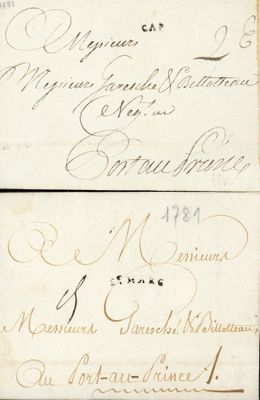 1781
A Messieurs
CAP
2 E
Messieurs Garesché & Billotteau
Neg.ts au
Port au Prince
1781
A Messieurs
ST MARC
5
Messieurs Garesché & Billotteau
Au Port-au-Prince /.